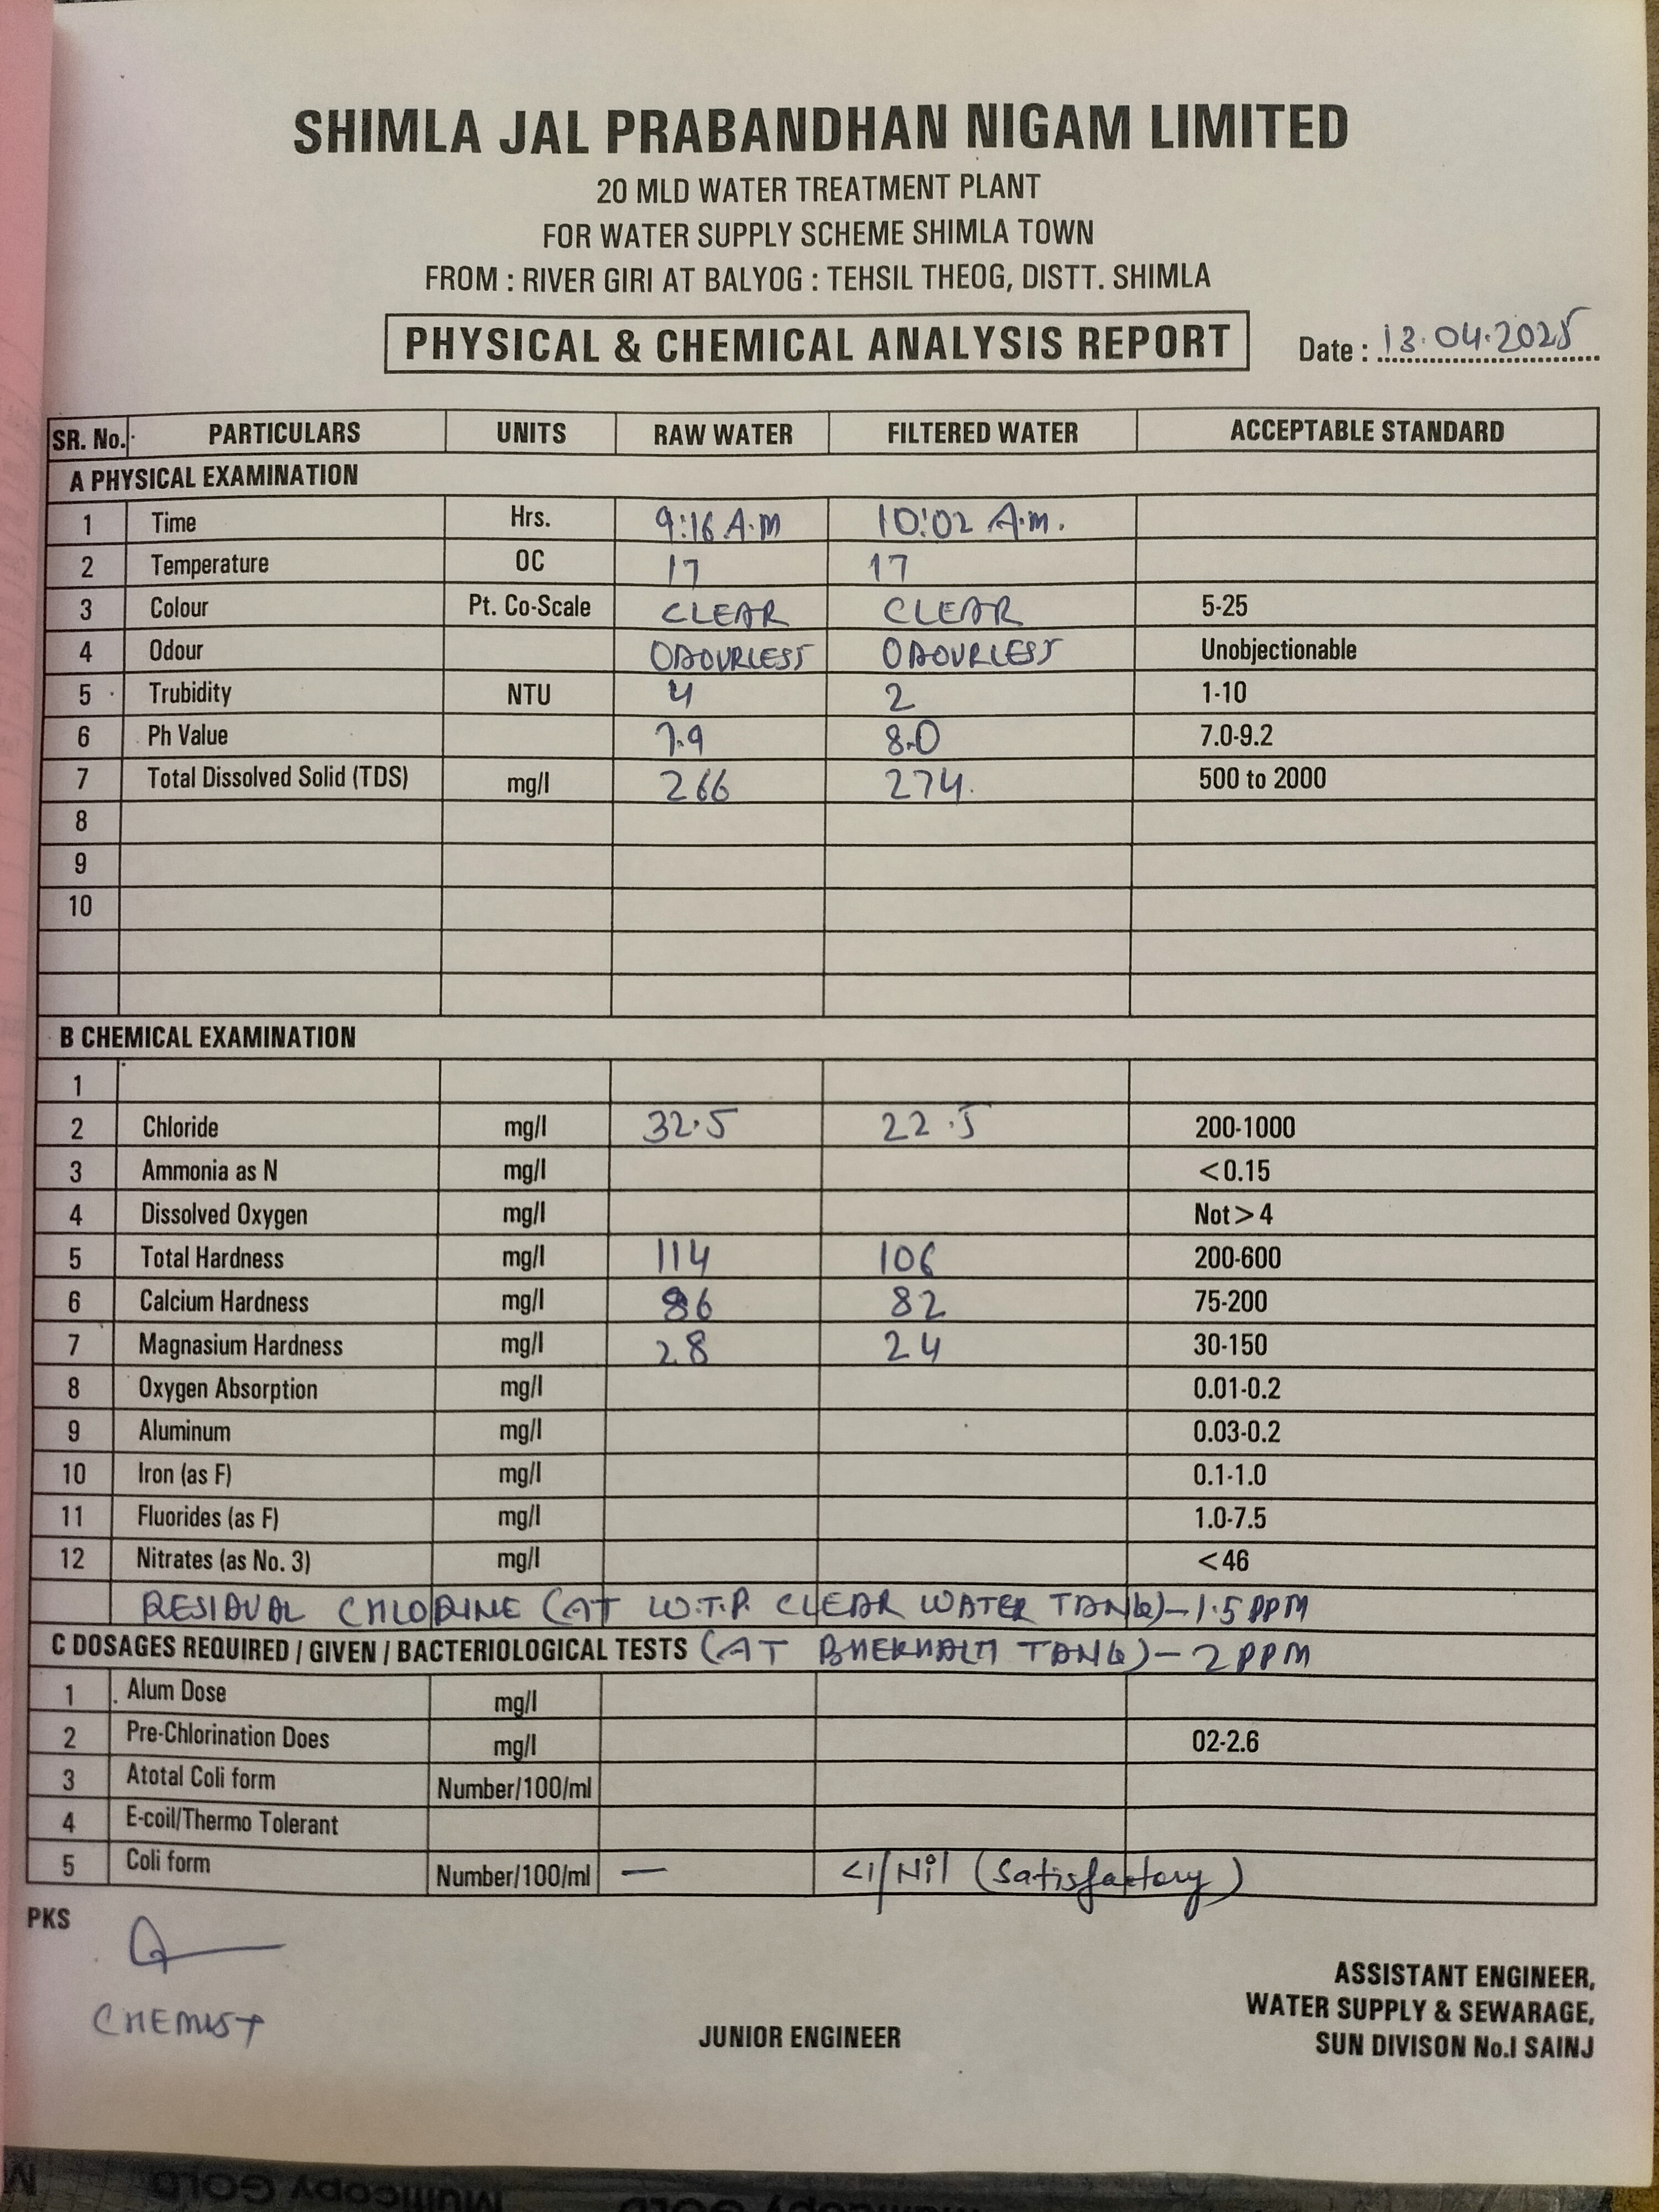 SHIMLA JAL PRABANDHAN NIGAM LIMITED
20 MLD WATER TREATMENT PLANT
FOR WATER SUPPLY SCHEME SHIMLA TOWN
FROM : RIVER GIRI AT BALYOG : TEHSIL THEOG, DISTT. SHIMLA
PHYSICAL & CHEMICAL ANALYSIS REPORT Date : 13.04.2025
SR. No. PARTICULARS UNITS RAW WATER FILTERED WATER ACCEPTABLE STANDARD
A PHYSICAL EXAMINATION
1 Time Hrs. 9:16 A.M 10:02 A.m.
2 Temperature OC 17 17
3 Colour Pt. Co-Scale CLEAR CLEAR 5-25
4 Odour ODOURLESS ODOURLESS Unobjectionable
5 Trubidity NTU 4 2 1-10
6 Ph Value 7.9 8.0 7.0-9.2
7 Total Dissolved Solid (TDS) mg/l 266 274. 500 to 2000
8
9
10
B CHEMICAL EXAMINATION
1
2 Chloride mg/l 32.5 22.5 200-1000
3 Ammonia as N mg/l <0.15
4 Dissolved Oxygen mg/l Not > 4
5 Total Hardness mg/l 114 106 200-600
6 Calcium Hardness mg/l 86 82 75-200
7 Magnasium Hardness mg/l 28 24 30-150
8 Oxygen Absorption mg/l 0.01-0.2
9 Aluminum mg/l 0.03-0.2
10 Iron (as F) mg/l 0.1-1.0
11 Fluorides (as F) mg/l 1.0-7.5
12 Nitrates (as No. 3) mg/l <46
RESIDUAL CHLORINE (AT W.T.P. CLEAR WATER TANK)-1.5 PPM
C DOSAGES REQUIRED / GIVEN / BACTERIOLOGICAL TESTS (AT TANK)- 2 PPM
1 Alum Dose mg/l
2 Pre-Chlorination Does mg/l 02-2.6
3 Atotal Coli form Number/100/ml
4 E-coil/Thermo Tolerant
5 Coli form Number/100/ml — <1/Nil (Satisfactory)
PKS
CHEMIST
JUNIOR ENGINEER
ASSISTANT ENGINEER,
WATER SUPPLY & SEWARAGE,
SUN DIVISON No.I SAINJ
Multicopy GOLD